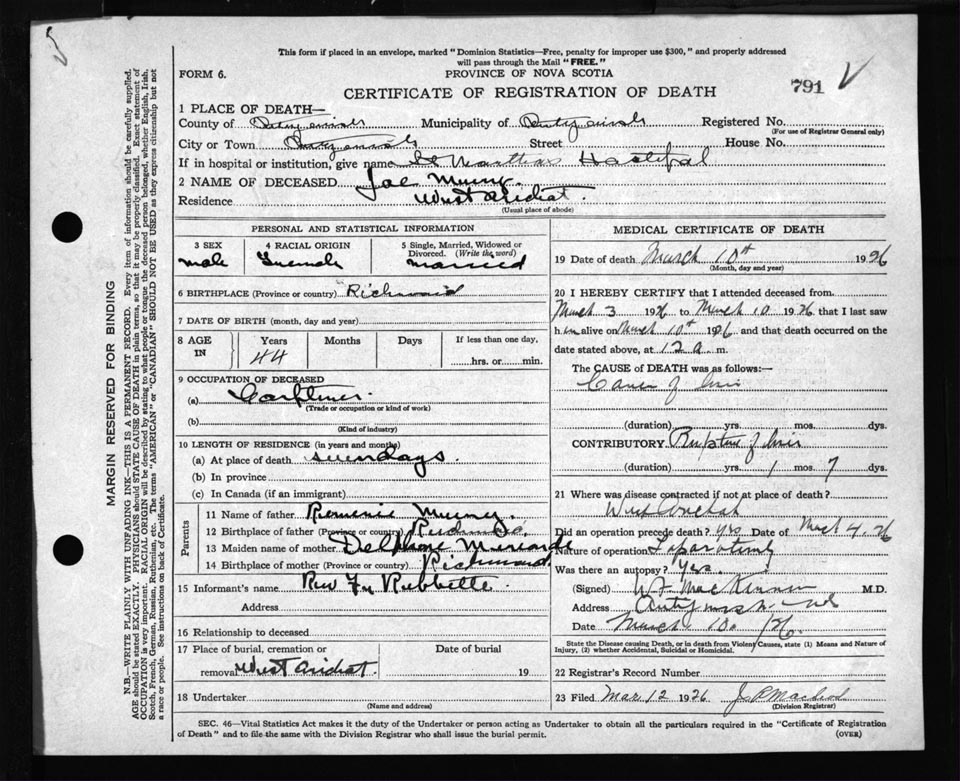 This form if placed in an envelope, marked "Dominion Statistics—Free, penalty for improper use $300," and properly addressed
will pass through the Mail "FREE."
FORM 6. PROVINCE OF NOVA SCOTIA
CERTIFICATE OF REGISTRATION OF DEATH
791
1 PLACE OF DEATH—
County of Municipality of Registered No.
(For use of Registrar General only)
City or Town Street House No.
If in hospital or institution, give name St Marthas Hospital
2 NAME OF DECEASED Joe
Residence West Arichat.
(Usual place of abode)
PERSONAL AND STATISTICAL INFORMATION
3 SEX 4 RACIAL ORIGIN 5 Single, Married, Widowed or Divorced. (Write the word)
male married
6 BIRTHPLACE (Province or country) Richmond
7 DATE OF BIRTH (month, day and year)
8 AGE IN Years Months Days If less than one day,
44 hrs. or min.
9 OCCUPATION OF DECEASED
(a)
(Trade or occupation or kind of work)
(b)
(Kind of industry)
10 LENGTH OF RESIDENCE (in years and months)
(a) At place of death seven days.
(b) In province
(c) In Canada (if an immigrant)
Parents
11 Name of father
12 Birthplace of father (Province or country) Richmond
13 Maiden name of mother
14 Birthplace of mother (Province or country) Richmond
15 Informant's name Rev Fr
Address
16 Relationship to deceased
17 Place of burial, cremation or Date of burial
removal West Arichat 19
18 Undertaker
(Name and address)
MEDICAL CERTIFICATE OF DEATH
19 Date of death March 10th 1926
(Month, day and year)
20 I HEREBY CERTIFY that I attended deceased from
March 3 1926 to March 10 1926 that I last saw
him alive on March 10th 1926 and that death occurred on
date stated above, at 12 a m.
The CAUSE of DEATH was as follows:—
(duration) yrs. mos. dys.
CONTRIBUTORY Rupture of
(duration) yrs. 1 mos. 7 dys.
21 Where was disease contracted if not at place of death?
West Arichat
Did an operation precede death? yes Date of March 4, 26
Nature of operation Laparotomy
Was there an autopsy? Yes.
(Signed) M.D.
Address Antigonish
Date March 10 /26.
State the Disease causing Death, or in death from Violent Causes, state (1) Means and Nature of
Injury, (2) whether Accidental, Suicidal or Homicidal.
22 Registrar's Record Number
23 Filed Mar 12 1926
(Division Registrar)
SEC. 46—Vital Statistics Act makes it the duty of the Undertaker or person acting as Undertaker to obtain all the particulars required in the "Certificate of Registration
of Death" and to file the same with the Division Registrar who shall issue the burial permit. (OVER)
MARGIN RESERVED FOR BINDING
N.B.—WRITE PLAINLY WITH UNFADING INK—THIS IS A PERMANENT RECORD. Every item of information should be carefully supplied.
AGE should be stated EXACTLY. PHYSICIANS should STATE CAUSE OF DEATH in plain terms, so that it may be properly classified. Exact statement of
OCCUPATION is very important. RACIAL ORIGIN will be described by stating to what people or tongue the deceased person belonged, whether English, Irish,
Scotch, French, German, Russian, Ruthenian, etc. The terms "AMERICAN" or "CANADIAN" SHOULD NOT BE USED as they express citizenship but not
a race or people. See instructions on back of Certificate.